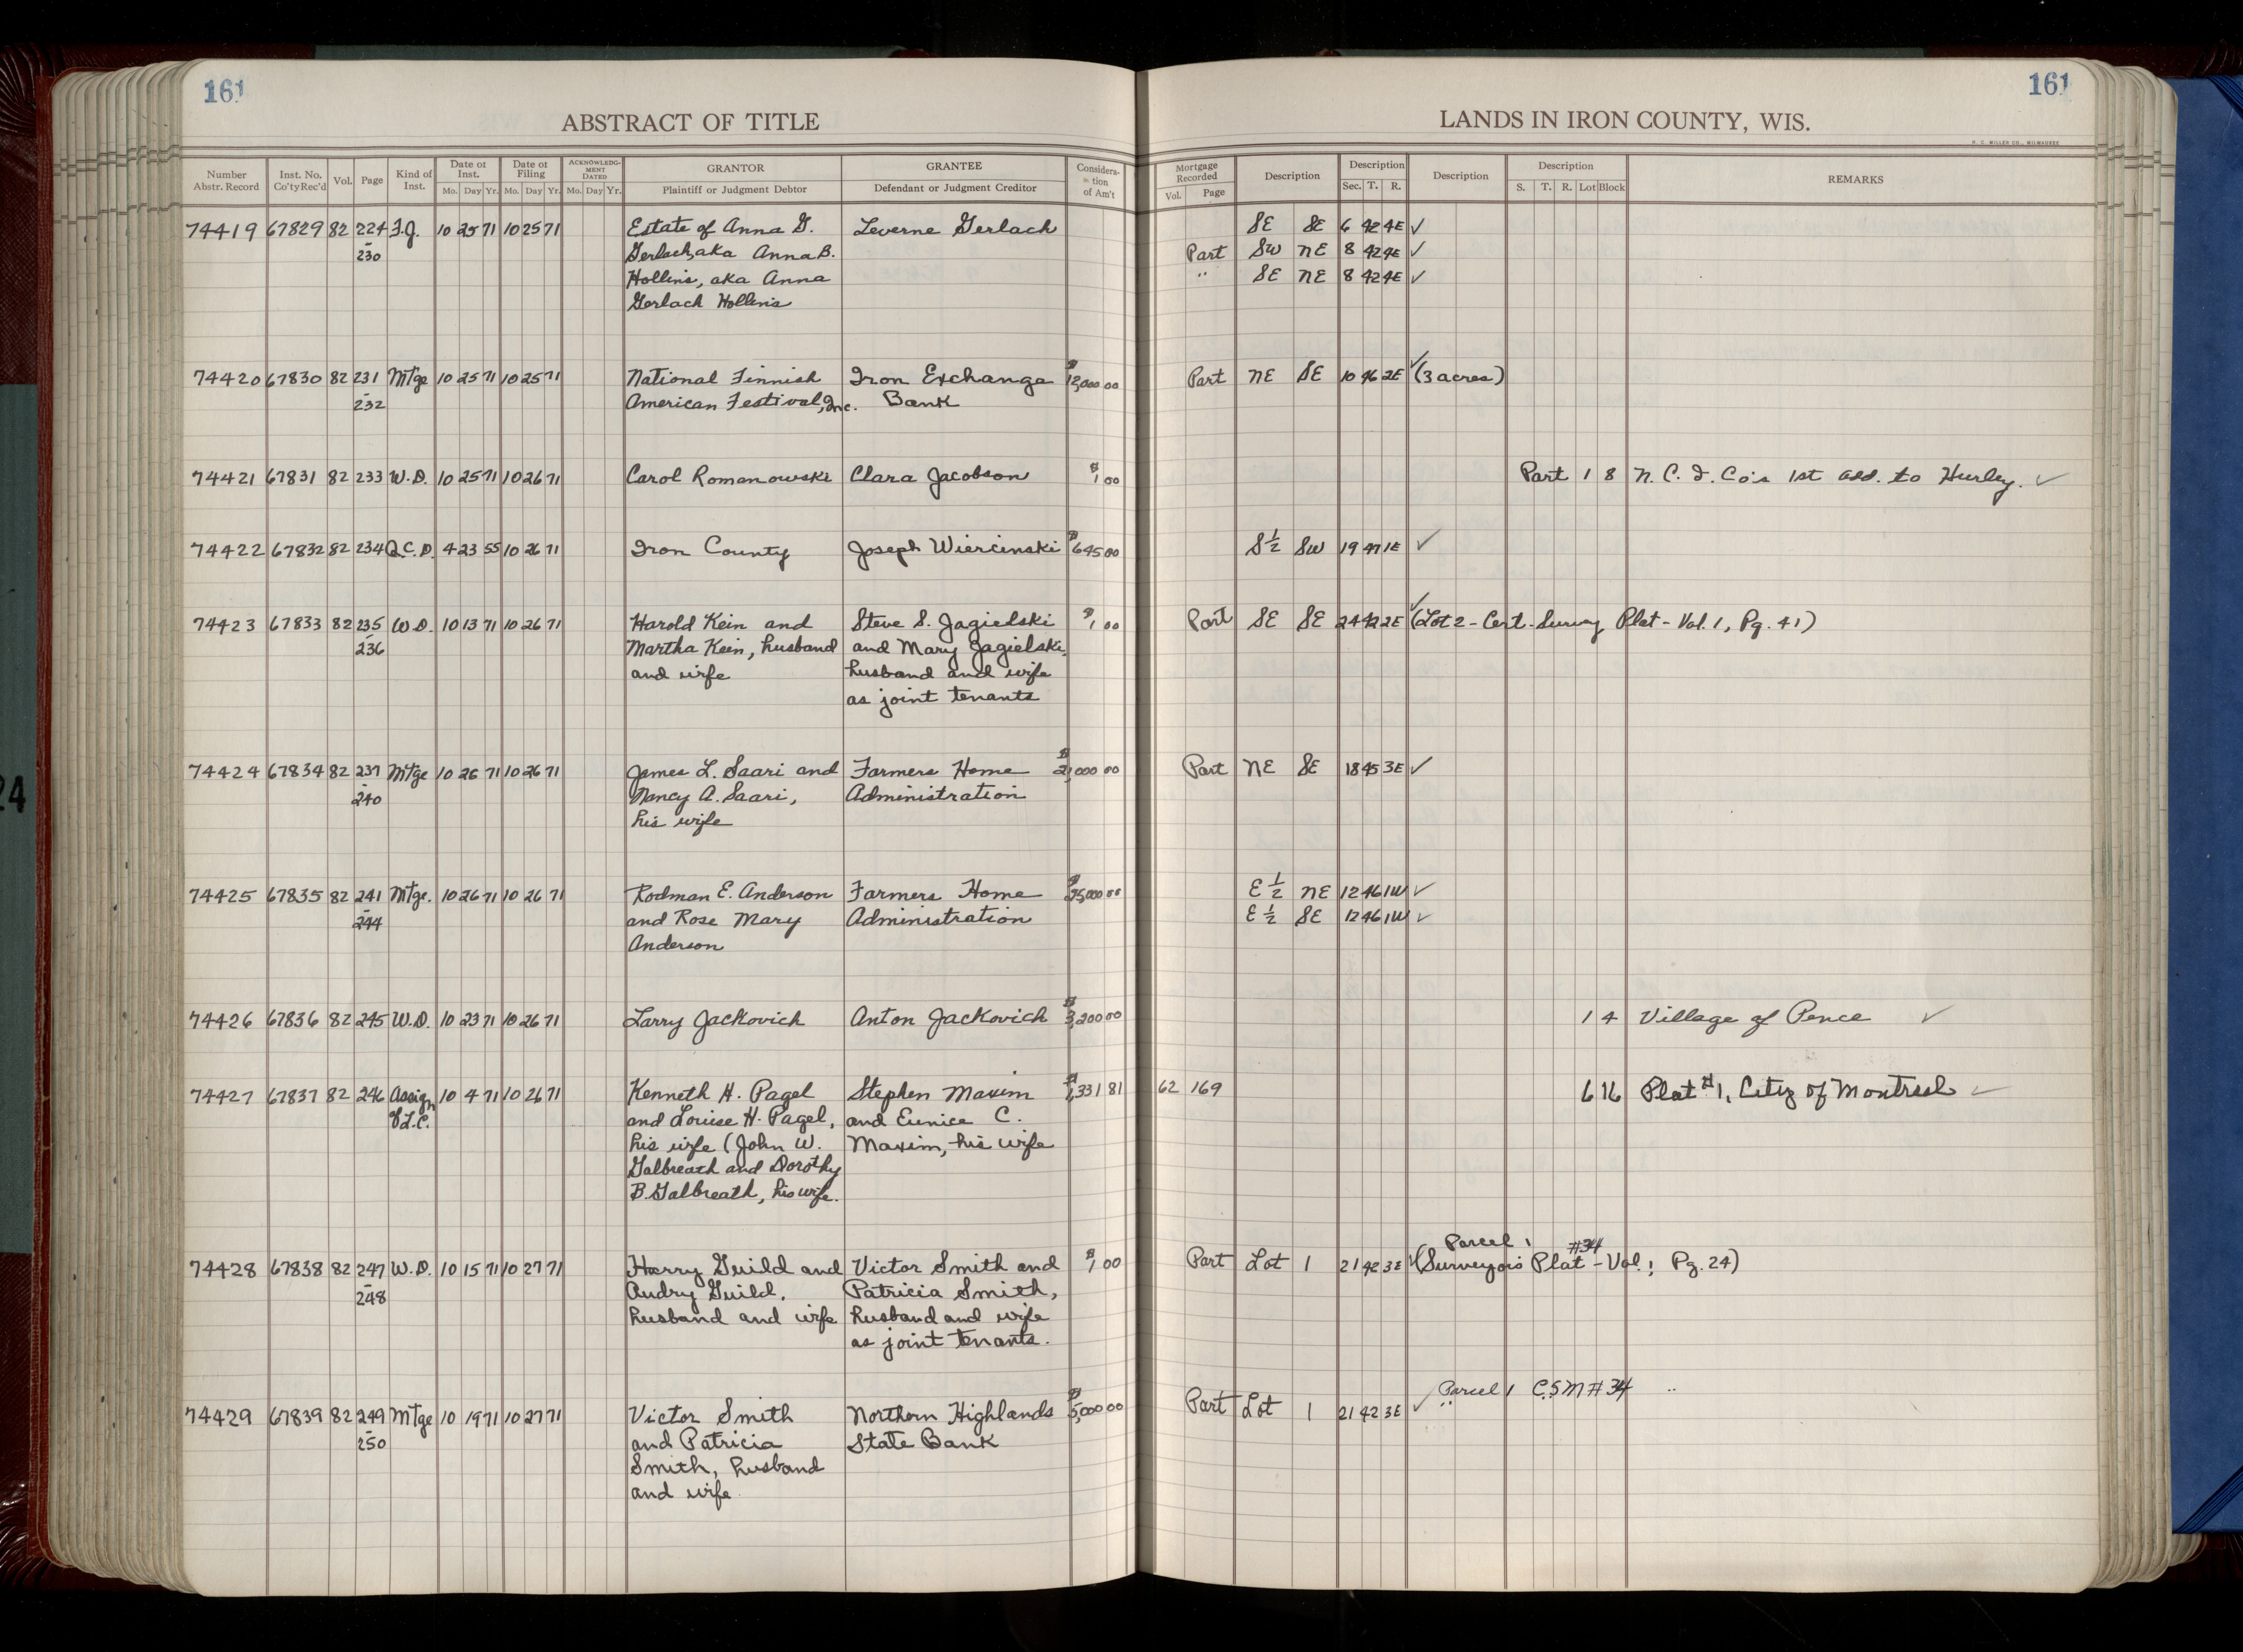 161
161
ABSTRACT OF TITLE
LANDS IN IRON COUNTY, WIS.
H. C. MILLER CO., MILWAUKEE
Number Abstr. Record
Inst. No. Co'ty Rec'd
Vol.
Page
Kind of Inst.
Date of Inst. Mo. Day Yr.
Date of Filing Mo. Day Yr.
ACKNOWLEDGMENT DATED Mo. Day Yr.
GRANTOR Plaintiff or Judgment Debtor
GRANTEE Defendant or Judgment Creditor
Consideration of Am't
Mortgage Recorded Vol. Page
Description
Description Sec. T. R.
Description
Description S. T. R. Lot Block
REMARKS
74419 67829 82 224 F.J. 10 25 71 10 25 71 Estate of Anna G. Leverne Gerlach SE SE 6 42 4E ✓
- 230 Gerlach, aka Anna B. Part SW NE 8 42 4E ✓
Hollins, aka Anna " SE NE 8 42 4E ✓
Gerlach Hollins
74420 67830 82 231 Mtge 10 25 71 10 25 71 National Finnish Iron Exchange $12,000 00 Part NE SE 10 46 2E ✓ (3 acres)
- 232 American Festival, Inc. Bank
74421 67831 82 233 W.D. 10 25 71 10 26 71 Carol Romanowski Clara Jacobson $1 00 Part 1 8 N. C. I. Co's 1st Add. to Hurley. ✓
74422 67832 82 234 Q.C.D. 4 23 55 10 26 71 Iron County Joseph Wiercinski $645 00 S½ SW 19 47 1E ✓
74423 67833 82 235 W.D. 10 13 71 10 26 71 Harold Kein and Steve S. Jagielski $1 00 Part SE SE 24 42 2E ✓ (Lot 2 - Cert. Survey Plat - Vol. 1, Pg. 41)
- 236 Martha Kein, husband and Mary Jagielski,
and wife husband and wife
as joint tenants
74424 67834 82 237 Mtge 10 26 71 10 26 71 James L. Saari and Farmers Home $21,000 00 Part NE SE 18 45 3E ✓
- 240 Nancy A. Saari, Administration
his wife
74425 67835 82 241 Mtge. 10 26 71 10 26 71 Rodman E. Anderson Farmers Home E½ NE 12 46 1W ✓
- 244 and Rose Mary Administration E½ SE 12 46 1W ✓
Anderson
74426 67836 82 245 W.D. 10 23 71 10 26 71 Larry Jackovich Anton Jackovich $3,200 00 1 4 Village of Pence ✓
74427 67837 82 246 Assign 10 4 71 10 26 71 Kenneth H. Pagel Stephen Maxim 331 81 62 169 6 16 Plat #1, City of Montreal ✓
of L.C. and Louise H. Pagel, and Eunice C.
his wife (John W. Maxim, his wife
Galbreath and Dorothy
B. Galbreath, his wife.
Parcel 1 #34
74428 67838 82 247 W.D. 10 15 71 10 27 71 Harry Guild and Victor Smith and $1 00 Part Lot 1 21 42 3E ✓ (Surveyors Plat - Vol. 1, Pg. 24)
- 248 Audry Guild, Patricia Smith,
husband and wife husband and wife
as joint tenants.
74429 67839 82 249 Mtge 10 19 71 10 27 71 Victor Smith Northern Highlands $5,000 00 Part Lot 1 21 42 3E ✓ Parcel 1 C.S.M #34 "
- 250 and Patricia State Bank
Smith, husband
and wife
24